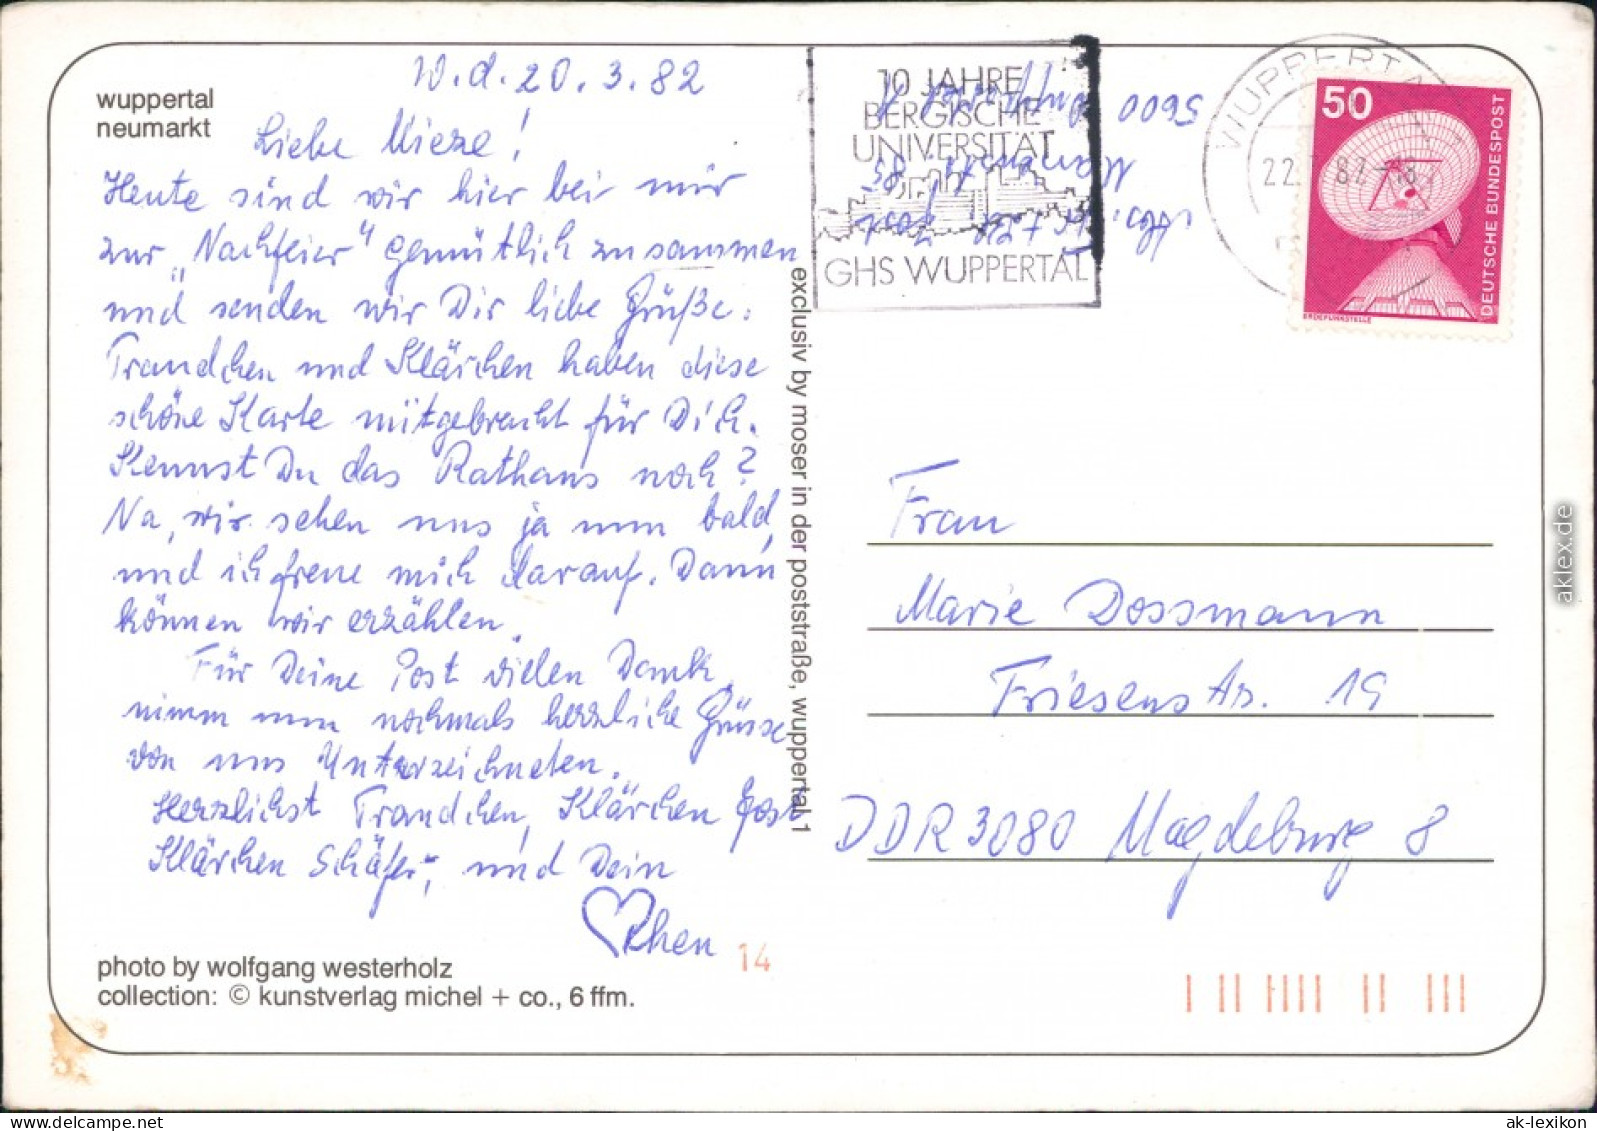 wuppertal
neumarkt
W.d. 20.3.82
Liebe Mieze!
Heute sind wir hier bei mir
zur „Nachfeier" gemütlich zusammen
und senden wir Dir liebe Grüße.
Traudchen und Klärchen haben diese
schöne Karte mitgebracht für Dich.
Kennst Du das Rathaus noch?
Na, wir sehen uns ja nun bald,
und ich freue mich darauf. Dann
können wir erzählen.
Für Deine Post vielen Dank,
nimm nun nochmals herzliche Grüsse
von uns Unterzeichneten.
Herzlichst Traudchen, Klärchen Jost
Klärchen Schäfer, und Dein
chen
photo by wolfgang westerholz
collection: © kunstverlag michel + co., 6 ffm.
14
exclusiv by moser in der poststraße, wuppertal 1
10 JAHRE
BERGISCHE
UNIVERSITÄT
GHS WUPPERTAL
5600
85
WUPPERTAL
22. 82-18
50
DEUTSCHE BUNDESPOST
ERDEFUNKSTELLE
Frau
Marie Dossmann
Friesenstr. 19
DDR 3080 Magdeburg 8
aklex.de
ak-lexikon